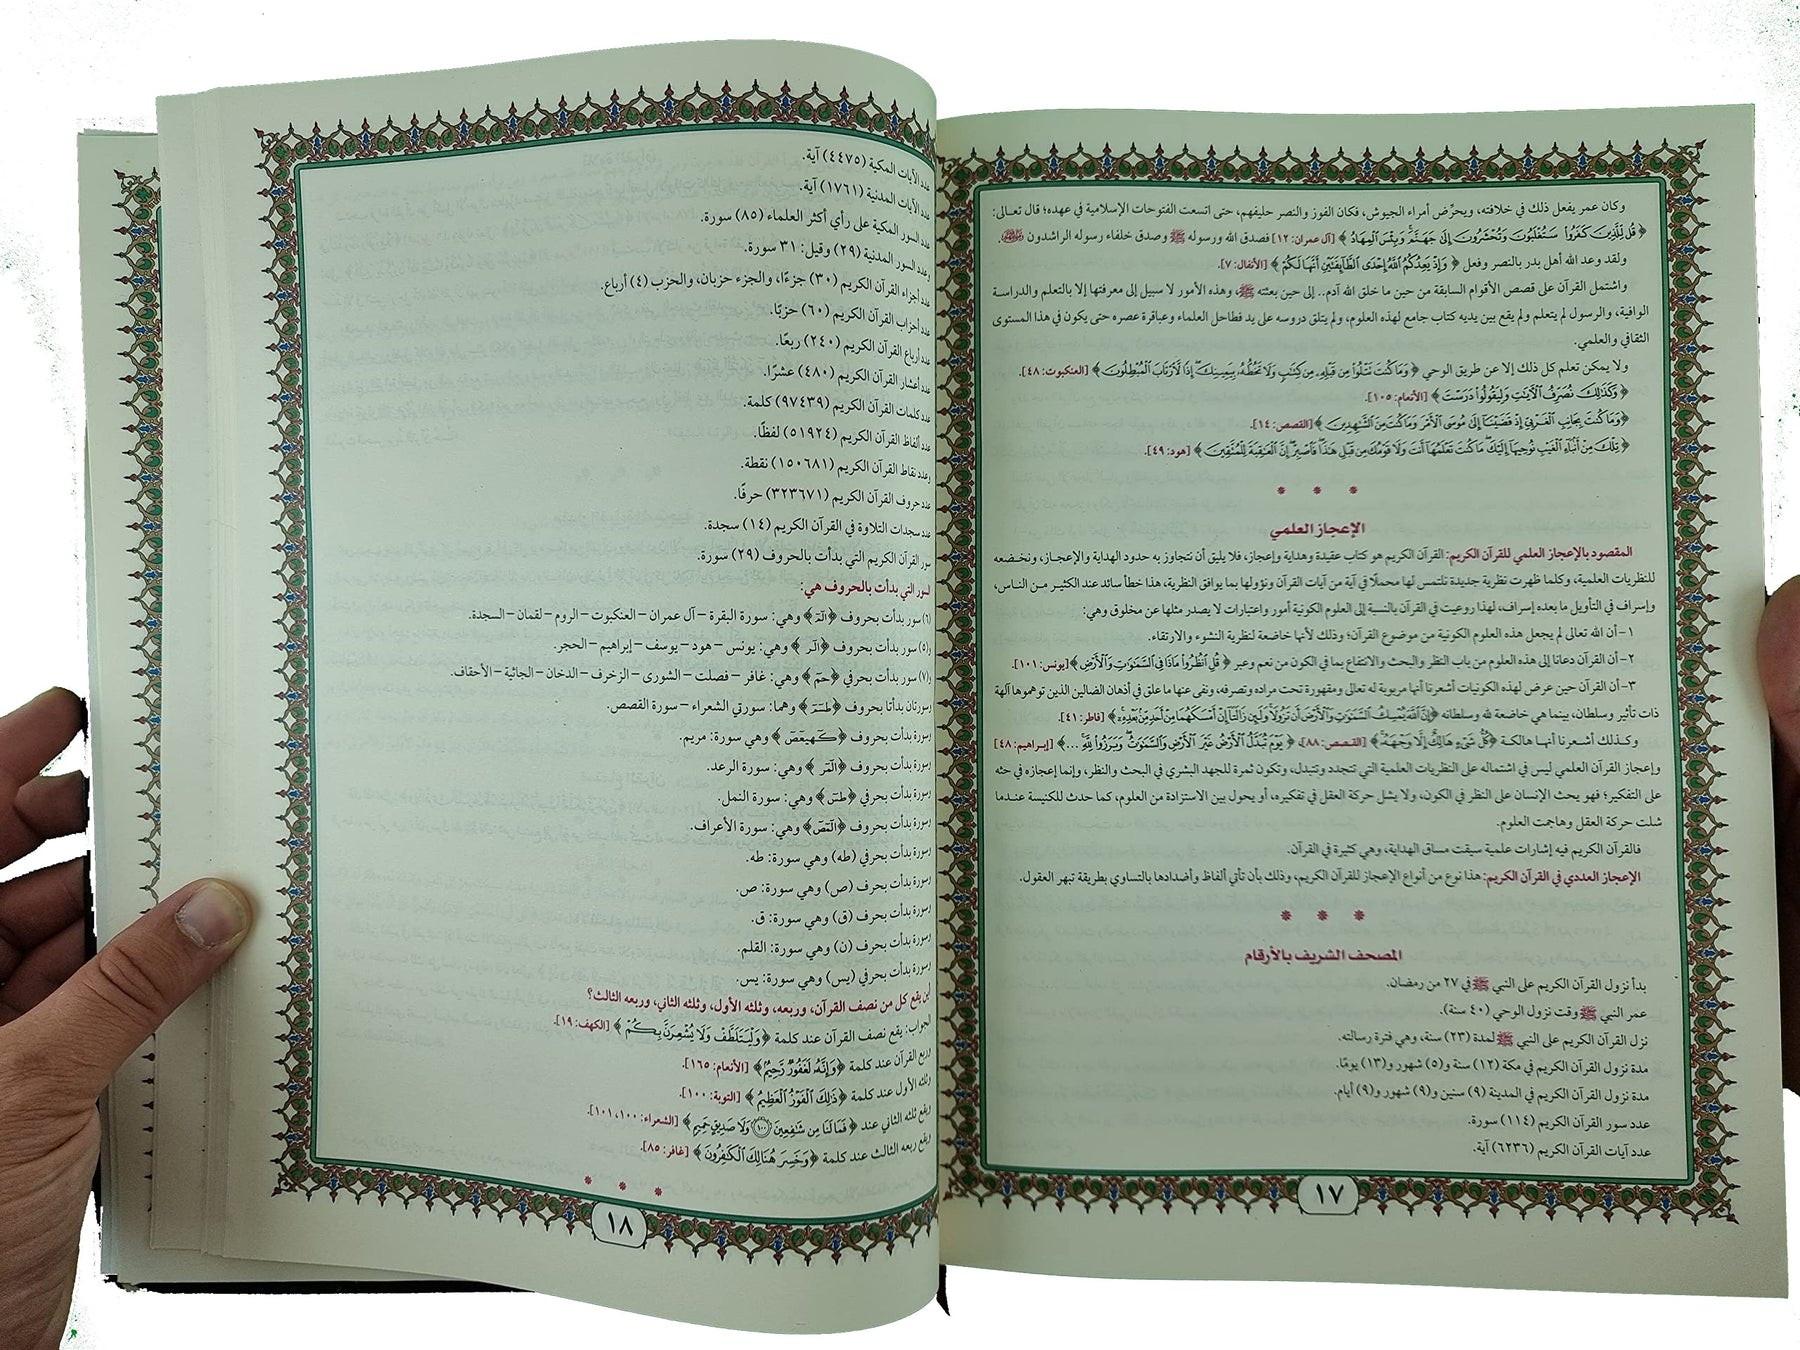 وكان عمر يفعل ذلك في خلافته، ويحرِّض أمراء الجيوش، فكان الفوز والنصر حليفهم، حتى اتسعت الفتوحات الإسلامية في عهده؛ قال تعالى:
﴿ قُل لِّلَّذِينَ كَفَرُوا۟ سَتُغْلَبُونَ وَتُحْشَرُونَ إِلَىٰ جَهَنَّمَ ۚ وَبِئْسَ ٱلْمِهَادُ ﴾ [آل عمران: ١٢] فصدق الله ورسوله ﷺ وصدق خلفاء رسوله الراشدون
ولقد وعد الله أهل بدر بالنصر وفعل ﴿ وَإِذْ يَعِدُكُمُ ٱللَّهُ إِحْدَى ٱلطَّآئِفَتَيْنِ أَنَّهَا لَكُمْ ﴾ [الأنفال: ٧].
واشتمل القرآن على قصص الأقوام السابقة من حين ما خلق الله آدم.. إلى حين بعثته ﷺ، وهذه الأمور لا سبيل إلى معرفتها إلا بالتعلم والدراسة
الوافية، والرسول لم يتعلم ولم يقع بين يديه كتاب جامع لهذه العلوم، ولم يتلق دروسه على يد فطاحل العلماء وعباقرة عصره حتى يكون في هذا المستوى
الثقافي والعلمي.
ولا يمكن تعلم كل ذلك إلا عن طريق الوحي ﴿ وَمَا كُنتَ تَتْلُوا۟ مِن قَبْلِهِۦ مِن كِتَـٰبٍ وَلَا تَخُطُّهُۥ بِيَمِينِكَ ۖ إِذًا لَّٱرْتَابَ ٱلْمُبْطِلُونَ ﴾ [العنكبوت: ٤٨].
﴿ وَكَذَٰلِكَ نُصَرِّفُ ٱلْـَٔايَـٰتِ وَلِيَقُولُوا۟ دَرَسْتَ ﴾ [الأنعام: ١٠٥].
﴿وَمَا كُنتَ بِجَانِبِ ٱلْغَرْبِىِّ إِذْ قَضَيْنَآ إِلَىٰ مُوسَى ٱلْأَمْرَ وَمَا كُنتَ مِنَ ٱلشَّـٰهِدِينَ ﴾ [القصص: ١٤].
﴿ تِلْكَ مِنْ أَنۢبَآءِ ٱلْغَيْبِ نُوحِيهَآ إِلَيْكَ ۖ مَا كُنتَ تَعْلَمُهَآ أَنتَ وَلَا قَوْمُكَ مِن قَبْلِ هَـٰذَا ۖ فَٱصْبِرْ ۖ إِنَّ ٱلْعَـٰقِبَةَ لِلْمُتَّقِينَ ﴾ [هود: ٤٩].
* * *
الإعجاز العلمي
المقصود بالإعجاز العلمي للقرآن الكريم: القرآن الكريم هو كتاب عقيدة وهداية وإعجاز، فلا يليق أن نتجاوز به حدود الهداية والإعجاز، ونخضعه
للنظريات العلمية، وكلما ظهرت نظرية جديدة نلتمس لها محملًا في آية من آيات القرآن ونؤولها بما يوافق النظرية، هذا خطأ سائد عند الكثير من الناس،
وإسراف في التأويل ما بعده إسراف، لهذا روعيت في القرآن بالنسبة إلى العلوم الكونية أمور واعتبارات لا يصدر مثلها عن مخلوق وهي:
١- أن الله تعالى لم يجعل هذه العلوم الكونية من موضوع القرآن؛ وذلك لأنها خاضعة لنظرية النشوء والارتقاء.
٢- أن القرآن دعانا إلى هذه العلوم من باب النظر والبحث والانتفاع بما في الكون من نعم وعبر ﴿ قُلِ ٱنظُرُوا۟ مَاذَا فِى ٱلسَّمَـٰوَٰتِ وَٱلْأَرْضِ ﴾ [يونس: ١٠١].
٣- أن القرآن حين عرض لهذه الكونيات أشعرنا أنها مربوبة له تعالى ومقهورة تحت مراده وتصرفه، ونفى عنها ما علق في أذهان الضالين الذين توهموها آلهة
ذات تأثير وسلطان، بينما هي خاضعة لله وسلطانه ﴿إِنَّ ٱللَّهَ يُمْسِكُ ٱلسَّمَـٰوَٰتِ وَٱلْأَرْضَ أَن تَزُولَا ۚ وَلَئِن زَالَتَآ إِنْ أَمْسَكَهُمَا مِنْ أَحَدٍ مِّنۢ بَعْدِهِۦٓ ۚ﴾ [فاطر: ٤١].
وكذلك أشعرنا أنها هالكة ﴿كُلُّ شَىْءٍ هَالِكٌ إِلَّا وَجْهَهُۥ ﴾ [القصص: ٨٨]، ﴿ يَوْمَ تُبَدَّلُ ٱلْأَرْضُ غَيْرَ ٱلْأَرْضِ وَٱلسَّمَـٰوَٰتُ ۖ وَبَرَزُوا۟ لِلَّهِ ...﴾ [إبراهيم: ٤٨]
وإعجاز القرآن العلمي ليس في اشتماله على النظريات العلمية التي تتجدد وتتبدل، وتكون ثمرة للجهد البشري في البحث والنظر، وإنما إعجازه في حثه
على التفكير؛ فهو يحث الإنسان على النظر في الكون، ولا يشل حركة العقل في تفكيره، أو يحول بين الاستزادة من العلوم، كما حدث للكنيسة عندما
شلت حركة العقل وهاجمت العلوم.
فالقرآن الكريم فيه إشارات علمية سيقت مساق الهداية، وهي كثيرة في القرآن.
الإعجاز العددي في القرآن الكريم: هذا نوع من أنواع الإعجاز للقرآن الكريم، وذلك بأن تأتي ألفاظ وأضدادها بالتساوي بطريقة تبهر العقول.
* * *
المصحف الشريف بالأرقام
بدأ نزول القرآن الكريم على النبي ﷺ في ٢٧ من رمضان.
عمر النبي ﷺ وقت نزول الوحي (٤٠ سنة).
نزل القرآن الكريم على النبي ﷺ لمدة (٢٣) سنة، وهي فترة رسالته.
مدة نزول القرآن الكريم في مكة (١٢) سنة و(٥) شهور و(١٣) يومًا.
مدة نزول القرآن الكريم في المدينة (٩) سنين و(٩) شهور و(٩) أيام.
عدد سور القرآن الكريم (١١٤) سورة.
عدد آيات القرآن الكريم (٦٢٣٦) آية.
١٧
عدد الآيات المكية (٤٤٧٥) آية.
عدد الآيات المدنية (١٧٦١) آية.
عدد السور المكية على رأي أكثر العلماء (٨٥) سورة.
وعدد السور المدنية (٢٩) وقيل: ٣١ سورة.
عدد أجزاء القرآن الكريم (٣٠) جزءًا، والجزء حزبان، والحزب (٤) أرباع.
عدد أحزاب القرآن الكريم (٦٠) حزبًا.
عدد أرباع القرآن الكريم (٢٤٠) ربعًا.
عدد أعشار القرآن الكريم (٤٨٠) عشرًا.
عدد كلمات القرآن الكريم (٩٧٤٣٩) كلمة.
عدد ألفاظ القرآن الكريم (٥١٩٢٤) لفظًا.
وعدد نقاط القرآن الكريم (١٥٠٦٨١) نقطة.
عدد حروف القرآن الكريم (٣٢٣٦٧١) حرفًا.
عدد سجدات التلاوة في القرآن الكريم (١٤) سجدة.
سور القرآن الكريم التي بدأت بالحروف (٢٩) سورة.
السور التي بدأت بالحروف هي:
(٦) سور بدأت بحروف ﴿الٓمٓ ﴾ وهي: سورة البقرة – آل عمران – العنكبوت – الروم – لقمان – السجدة.
و(٥) سور بدأت بحروف ﴿الٓر ﴾ وهي: يونس – هود – يوسف – إبراهيم – الحجر.
و(٧) سور بدأت بحرفي ﴿حمٓ ﴾ وهي: غافر – فصلت – الشورى – الزخرف – الدخان – الجاثية – الأحقاف.
وسورتان بدأتا بحروف ﴿طسٓمٓ ﴾ وهما: سورتي الشعراء – سورة القصص.
وسورة بدأت بحروف ﴿كٓهيعٓصٓ ﴾ وهي سورة: مريم.
وسورة بدأت بحروف ﴿الٓمٓر ﴾ وهي: سورة الرعد.
وسورة بدأت بحرفي ﴿طسٓ ﴾ وهي: سورة النمل.
وسورة بدأت بحروف ﴿الٓمٓصٓ ﴾ وهي: سورة الأعراف.
وسورة بدأت بحرفي (طه) وهي سورة: طه.
وسورة بدأت بحرف (ص) وهي سورة: ص.
وسورة بدأت بحرف (ق) وهي سورة: ق.
وسورة بدأت بحرف (ن) وهي سورة: القلم.
وسورة بدأت بحرفي (يس) وهي سورة: يس.
أين يقع كل من نصف القرآن، وربعه، وثلثه الأول، وثلثه الثاني، وربعه الثالث؟
الجواب: يقع نصف القرآن عند كلمة ﴿وَلْيَتَلَطَّفْ وَلَا يُشْعِرَنَّ بِكُمْ ﴾ [الكهف: ١٩].
وربع القرآن عند كلمة ﴿وَإِنَّهُۥ لَغَفُورٌ رَّحِيمٌۢ﴾ [الأنعام: ١٦٥].
وثلثه الأول عند كلمة ﴿ذَٰلِكَ ٱلْفَوْزُ ٱلْعَظِيمُ ﴾ [التوبة: ١٠٠].
ويقع ثلثه الثاني عند ﴿ فَمَا لَنَا مِن شَـٰفِعِينَ ١٠٠ وَلَا صَدِيقٍ حَمِيمٍ ﴾ [الشعراء: ١٠٠، ١٠١].
ويقع ربعه الثالث عند كلمة ﴿وَخَسِرَ هُنَالِكَ ٱلْكَـٰفِرُونَ ﴾ [غافر: ٨٥].
* * *
١٨